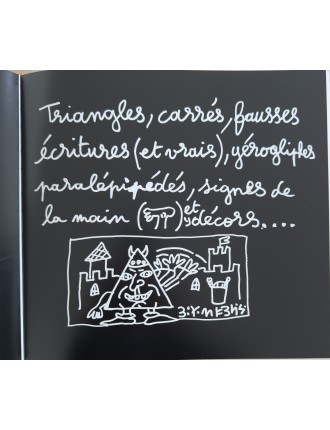 Triangles, carrés, fausses
écritures (et vrais), yérogliphes
paralépipédés, signes de
la main ( ) et décors,....